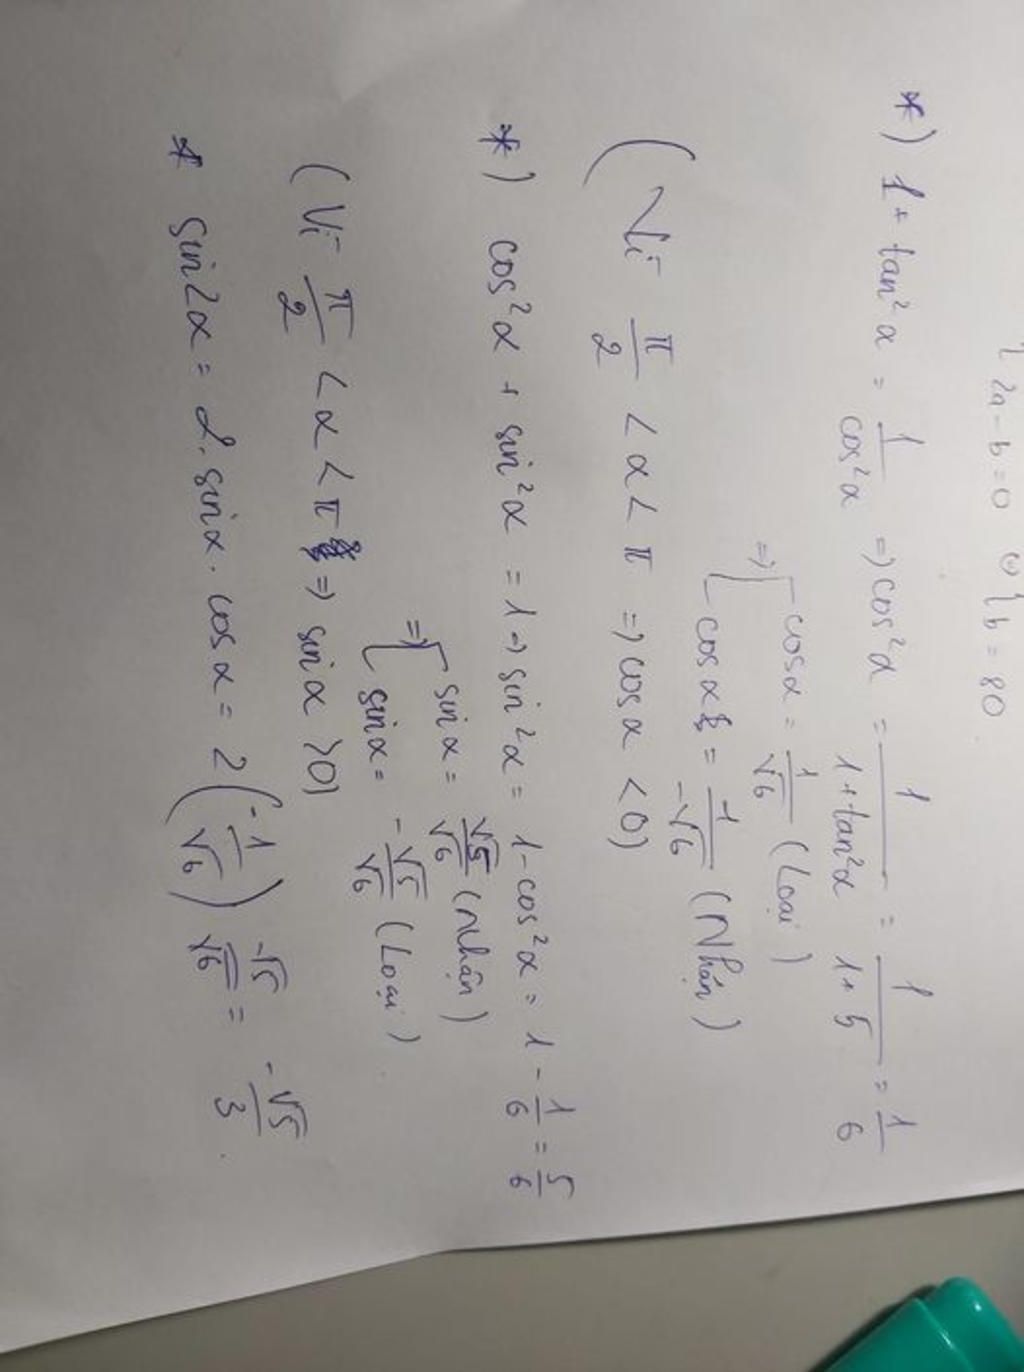 2a - b = 0 ⇔ { b = 80
*) 1 + tan²α = 1/cos²α => cos²α = 1/(1+tan²α) = 1/(1+5) = 1/6
=> [ cosα = 1/√6 (Loại)
cosα = -1/-√6 (Nhận)
(Vì π/2 < α < π => cosα < 0)
*) cos²α + sin²α = 1 => sin²α = 1 - cos²α = 1 - 1/6 = 5/6
=> [ sinα = √5/√6 (Nhận)
sinα = -√5/√6 (Loại)
(Vì π/2 < α < π => sinα > 0)
* sin2α = 2.sinα.cosα = 2(-1/√6) -√5/√6 = -√5/3.